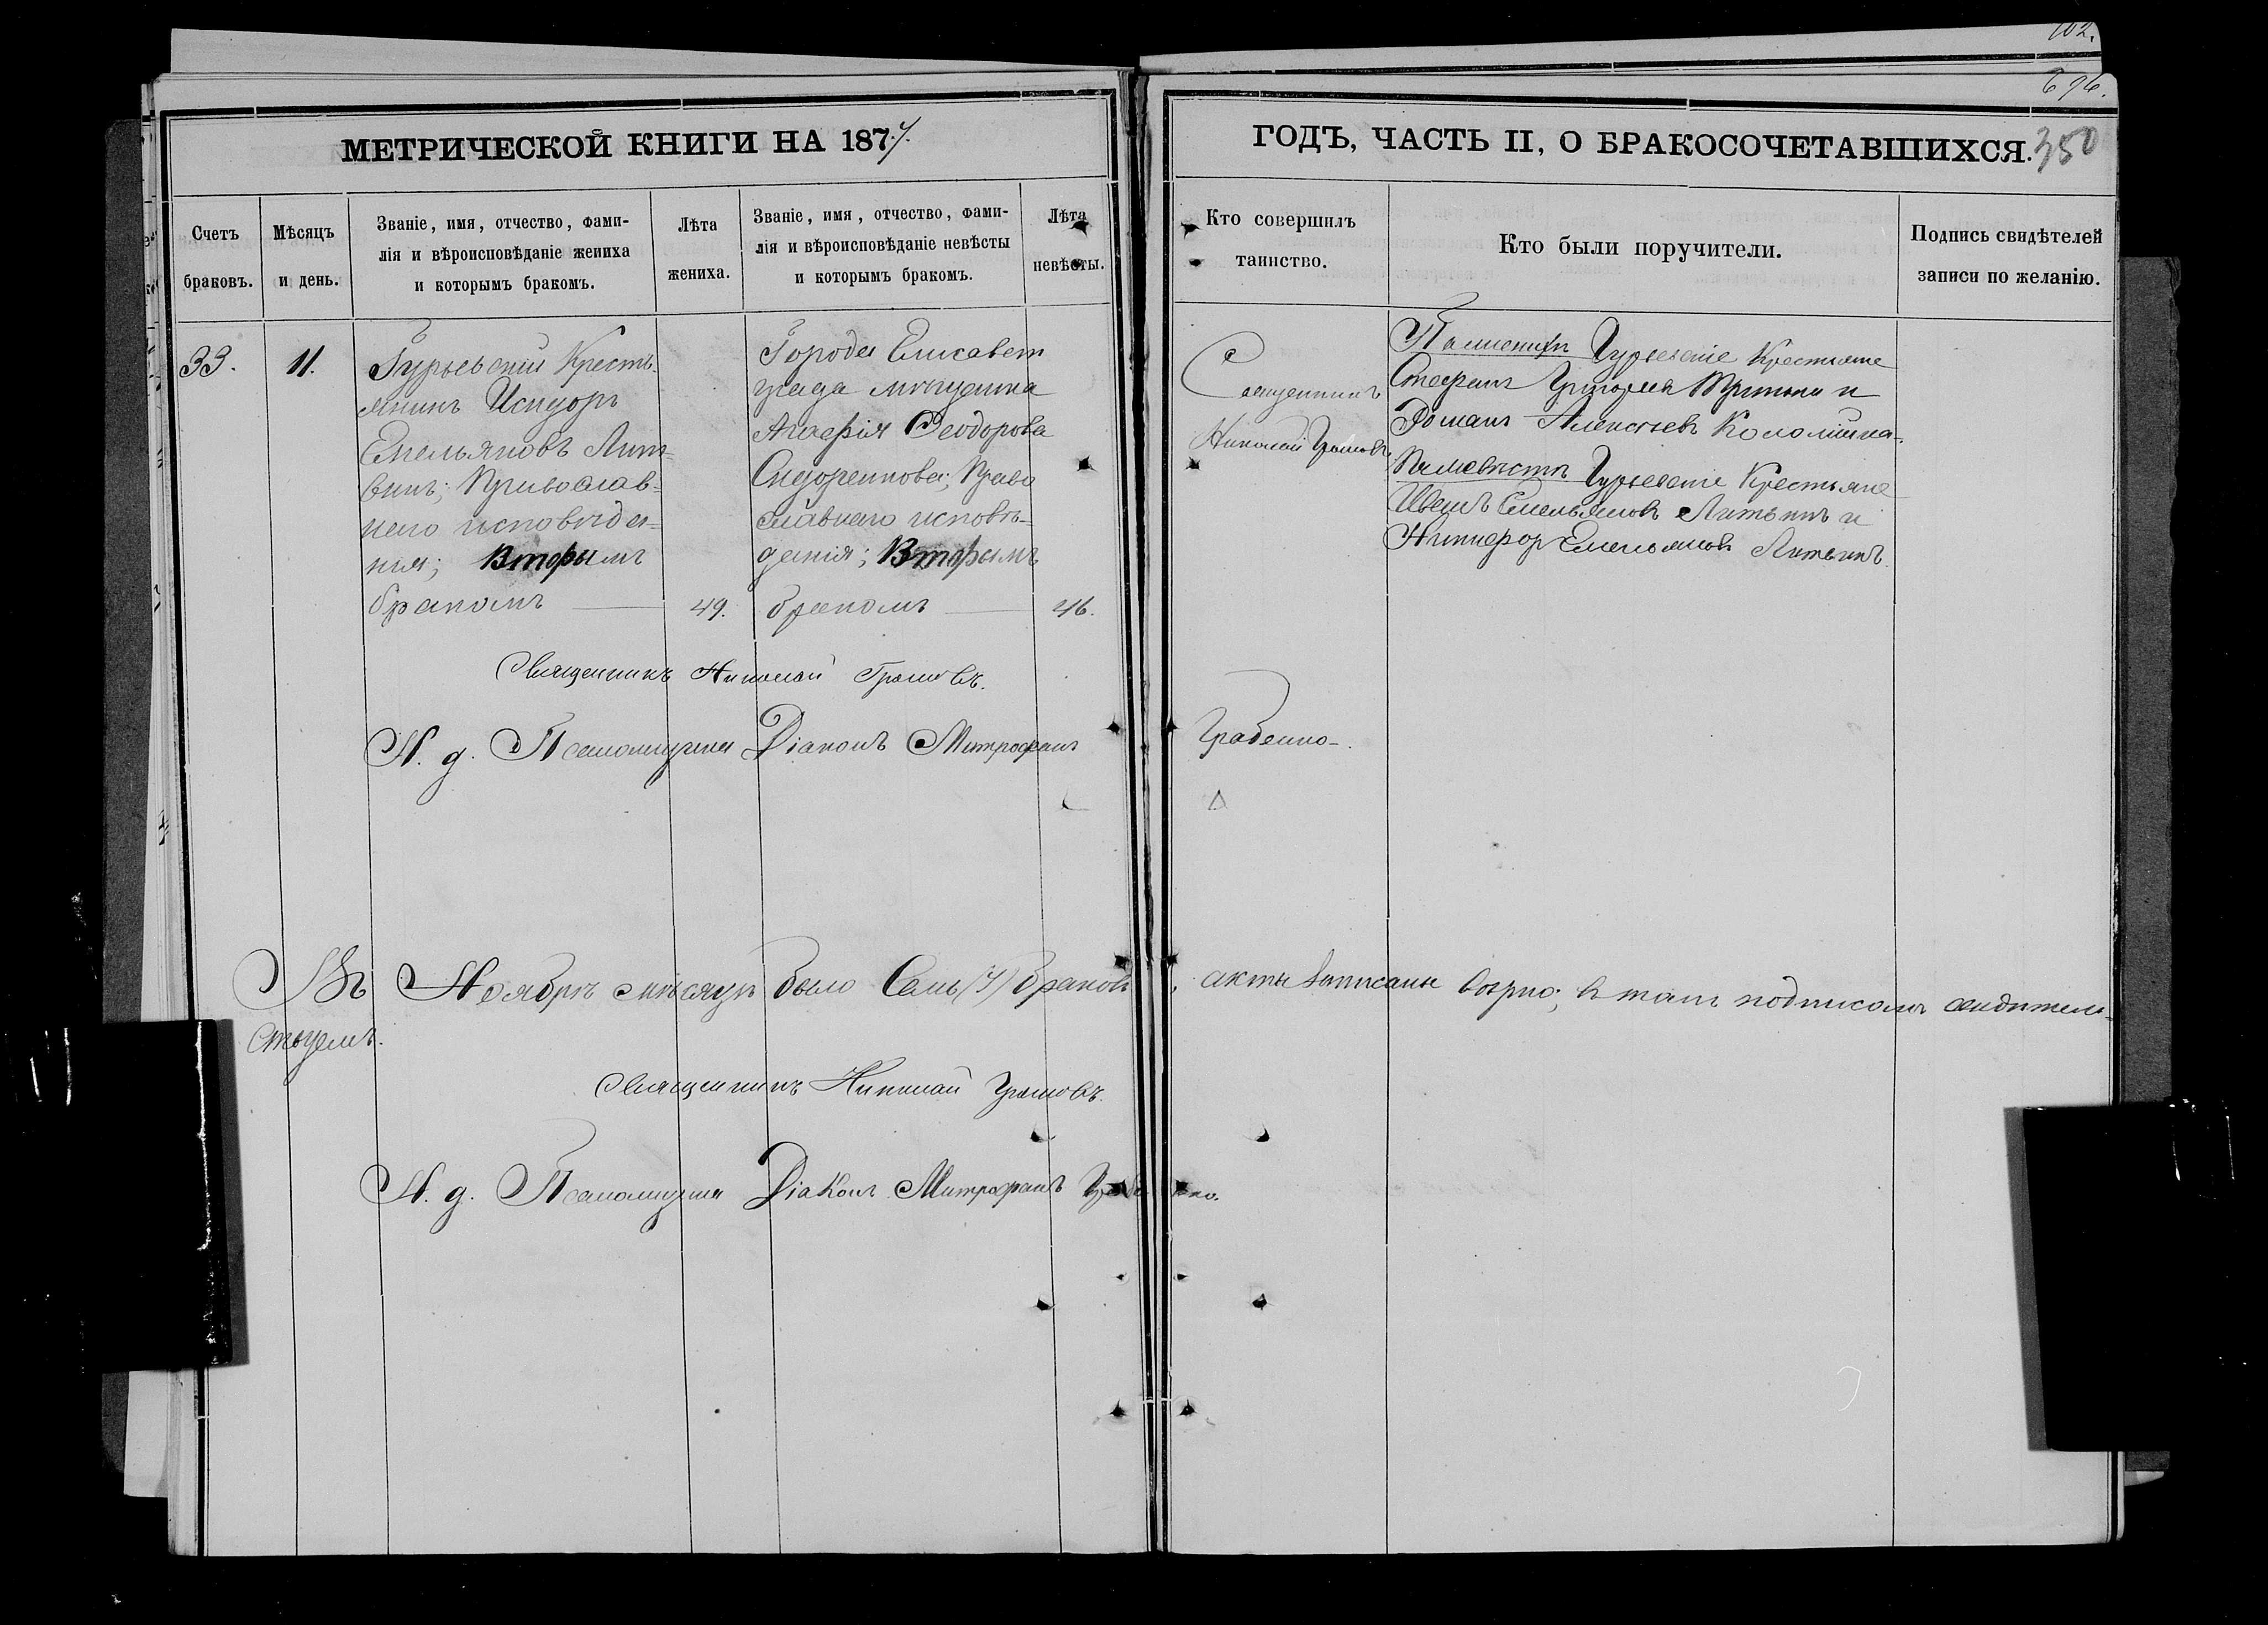 102.
696.
МЕТРИЧЕСКОЙ КНИГИ НА 1877.
ГОДЪ, ЧАСТЬ II, О БРАКОСОЧЕТАВШИХСЯ. 350
Счетъ
браковъ.
Мѣсяцъ
и день.
Званіе, имя, отчество, фами-
лія и вѣроисповѣданіе жениха
и которымъ бракомъ.
Лѣта
жениха.
Званіе, имя, отчество, фами-
лія и вѣроисповѣданіе невѣсты
и которымъ бракомъ.
Лѣта
невѣсты.
Кто совершилъ
таинство.
Кто были поручители.
Подпись свидѣтелей
записи по желанію.
33.
11.
Гурьевскій Кресть-
янинъ Исидоръ
Емельяновъ Лит-
винъ; Православ-
наго исповѣда-
нія; Вторымъ
бракомъ
49.
Города Елисавет
града мѣщанка
Агафія Ѳеодорова
Сидоренкова; Право
славнаго исповѣ-
данія; Вторымъ
бракомъ
46.
Священникъ
Николай Громовъ
По женихѣ Гурьевскіе Крестьяне
Стефанъ Григорьевъ и
Романъ Алексѣевъ
По невѣстѣ Гурьевскіе Крестьяне
Иванъ Емельяновъ Литвинъ и
Никифоръ Емельяновъ Литвинъ.
Священникъ Николай Громовъ.
И. д. Псаломщика Діаконъ Митрофанъ Грабенко.
Въ Ноябрѣ мѣсяцѣ было Семь (7) браковъ, акты записаны вѣрно; въ томъ подписомъ свидѣтель-
ствуемъ.
Священникъ Николай Громовъ.
И. д. Псаломщика Діаконъ Митрофанъ Грабенко.